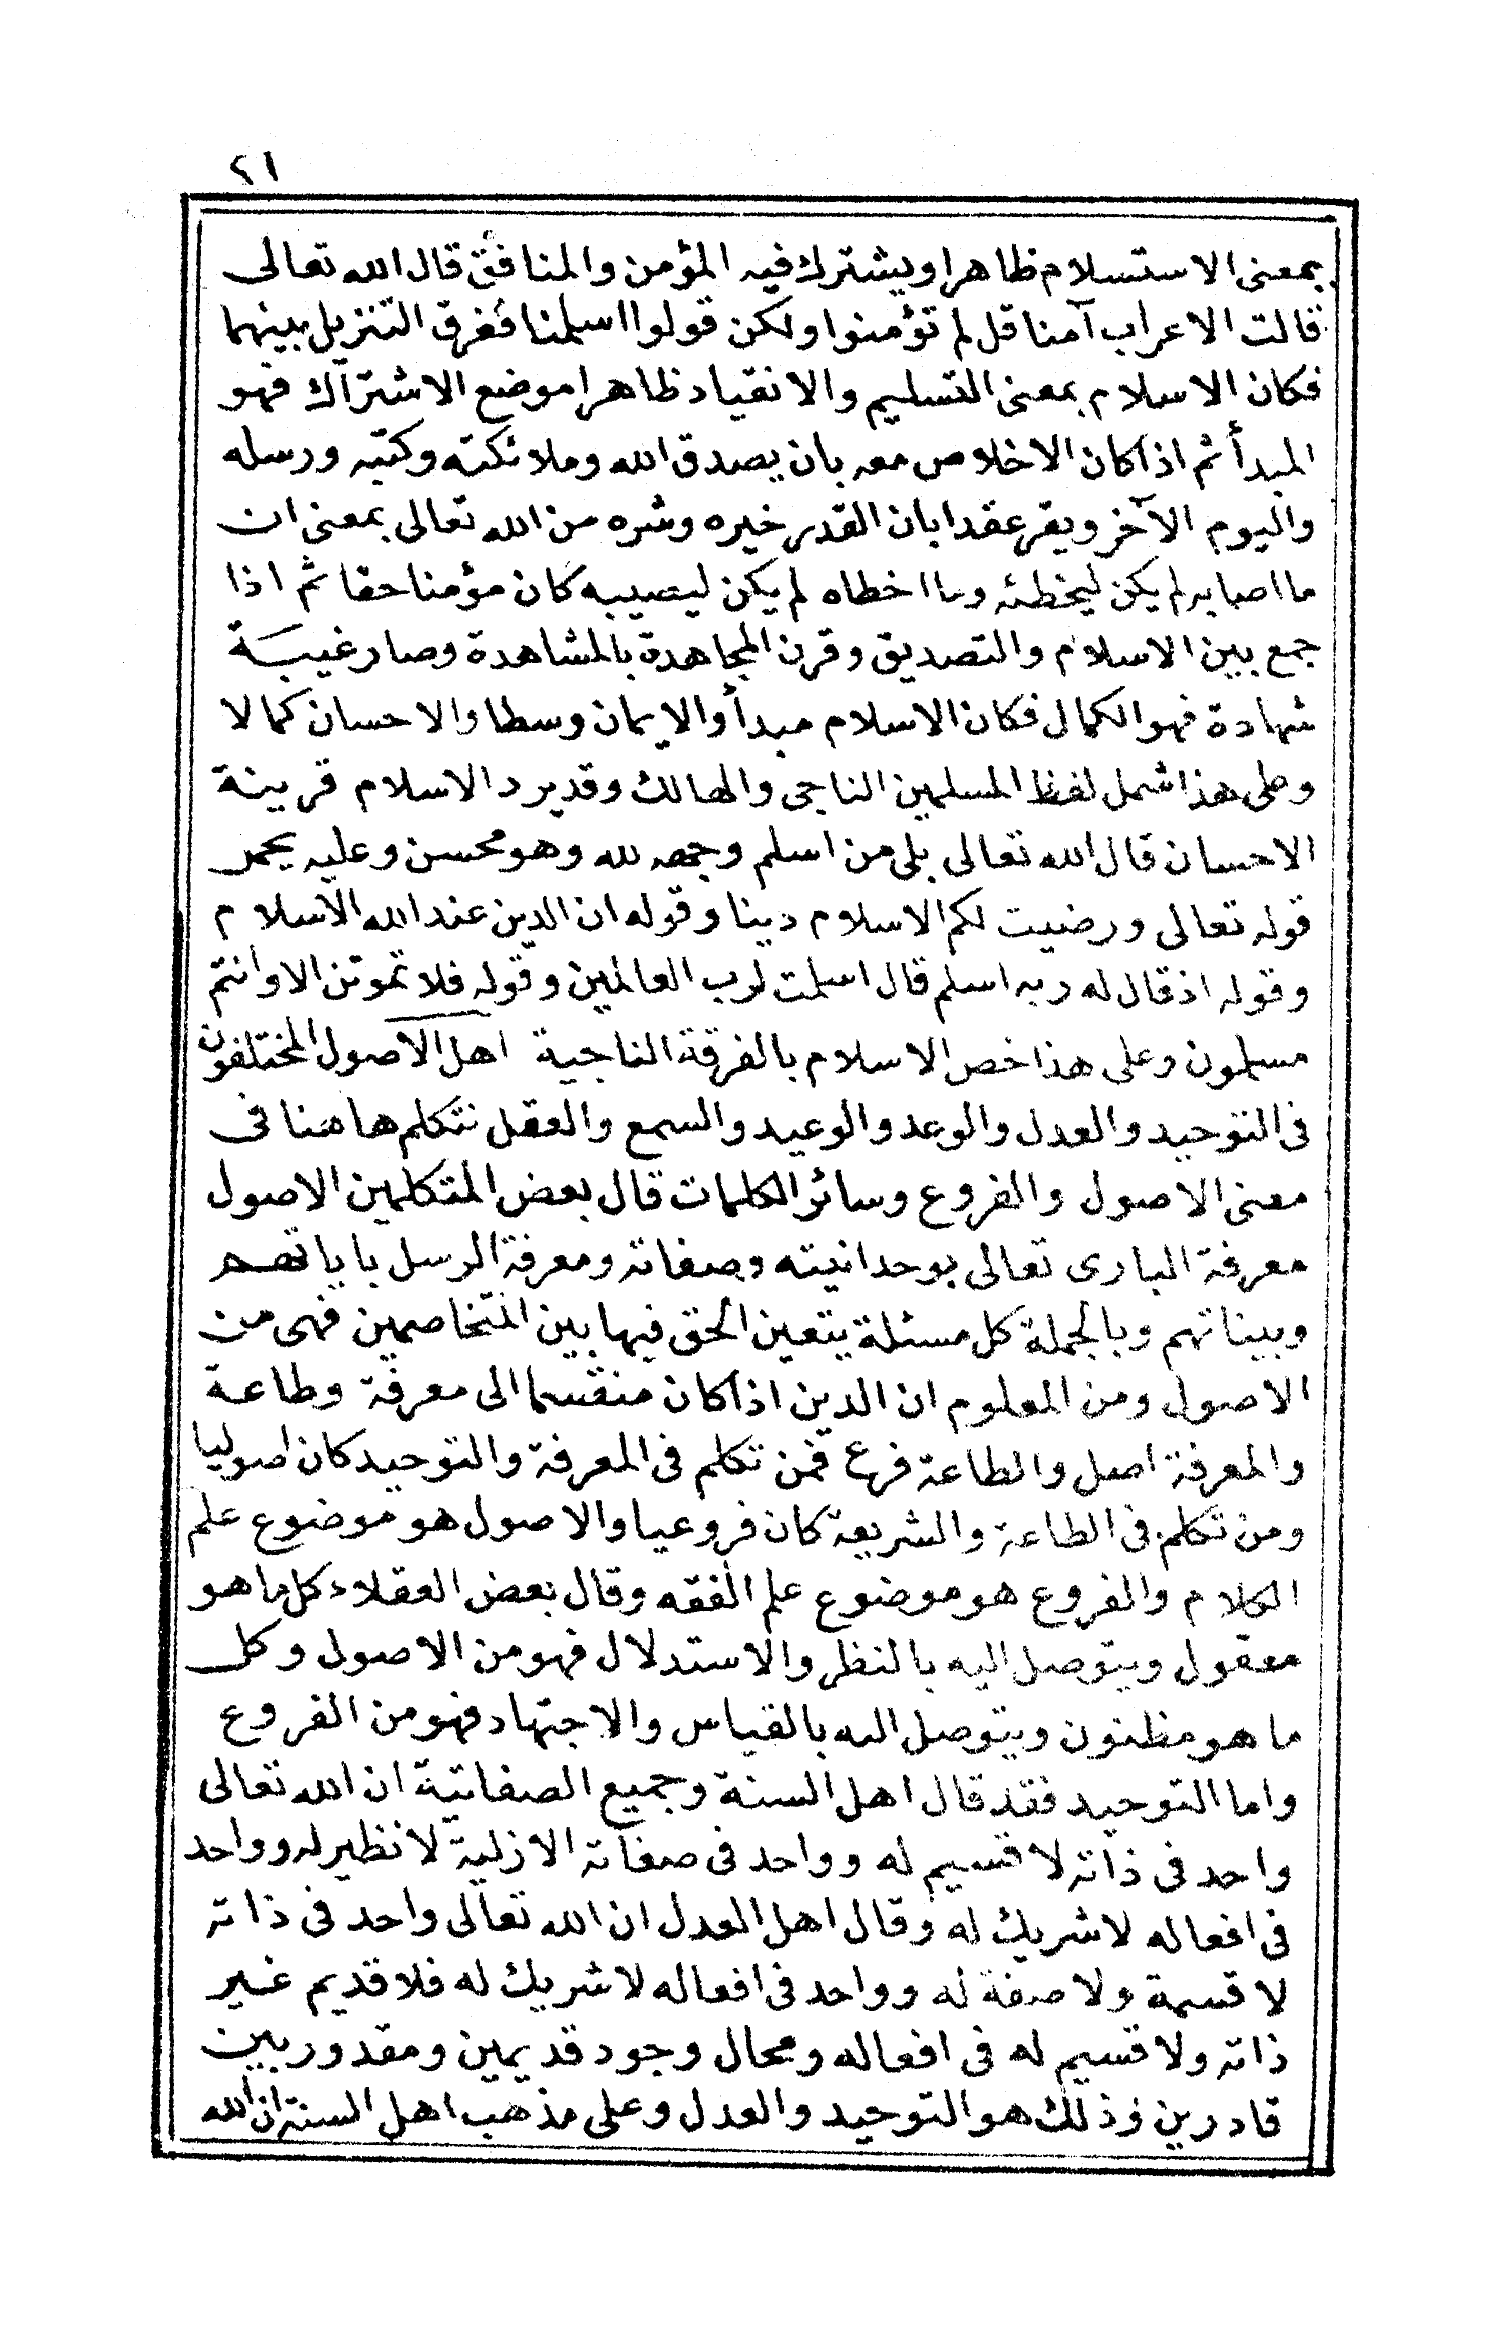 ٢١
بمعنى الاستسلام ظاهرا ويشترك فيه المؤمن والمنافق قال الله تعالى
قالت الاعراب آمنا قل لم تؤمنوا ولكن قولوا اسلمنا ففرق التنزيل بينهما
فكان الاسلام بمعنى التسليم والانقياد ظاهرا موضع الاشتراك فهو
المبدأ ثم اذا كان الاخلاص معه بان يصدق الله وملائكته وكتبه ورسله
واليوم الآخر ويقر عقدا بان القدر خيره وشره من الله تعالى بمعنى ان
ما اصابه لم يكن ليخطئه وما اخطاه لم يكن ليصيبه كان مؤمنا حقا ثم اذا
جمع بين الاسلام والتصديق وقرن المجاهدة بالمشاهدة وصار غيبة
شهادة فهو الكمال فكان الاسلام مبدأ والايمان وسطا والاحسان كمالا
وعلى هذا شمل لفظ المسلمين الناجى والهالك وقد يرد الاسلام قرينة
الاحسان قال الله تعالى بلى من اسلم وجهه لله وهو محسن وعليه يحمل
قوله تعالى ورضيت لكم الاسلام دينا وقوله ان الدين عند الله الاسلام
وقوله اذ قال له ربه اسلم قال اسلمت لرب العالمين وقوله فلا تموتن الا وانتم
مسلمون وعلى هذا خص الاسلام بالفرقة الناجية اهل الاصول المختلفون
فى التوحيد والعدل والوعد والوعيد والسمع والعقل نتكلم هاهنا فى
معنى الاصول والفروع وسائر الكلمات قال بعض المتكلمين الاصول
معرفة البارى تعالى بوحدانيته وصفاته ومعرفة الرسل باياتهم
وبيناتهم وبالجملة كل مسئلة يتعين الحق فيها بين المتخاصمين فهى من
الاصول ومن المعلوم ان الدين اذا كان منقسما الى معرفة وطاعة
والمعرفة اصل والطاعة فرع فمن تكلم فى المعرفة والتوحيد كان اصوليا
ومن تكلم فى الطاعة والشريعة كان فروعيا والاصول هو موضوع علم
الكلام والفروع هو موضوع علم الفقه وقال بعض العقلاء كل ما هو
معقول ويتوصل اليه بالنظر والاستدلال فهو من الاصول وكل
ما هو مظنون ويتوصل اليه بالقياس والاجتهاد فهو من الفروع
واما التوحيد فقد قال اهل السنة وجميع الصفاتية ان الله تعالى
واحد فى ذاته لا قسيم له وواحد فى صفاته الازلية لا نظير له وواحد
فى افعاله لا شريك له وقال اهل العدل ان الله تعالى واحد فى ذاته
لا قسمة ولا صفة له وواحد فى افعاله لا شريك له فلا قديم غير
ذاته ولا قسيم له فى افعاله ومحال وجود قديمين ومقدور بين
قادرين وذلك هو التوحيد والعدل وعلى مذهب اهل السنة ان الله